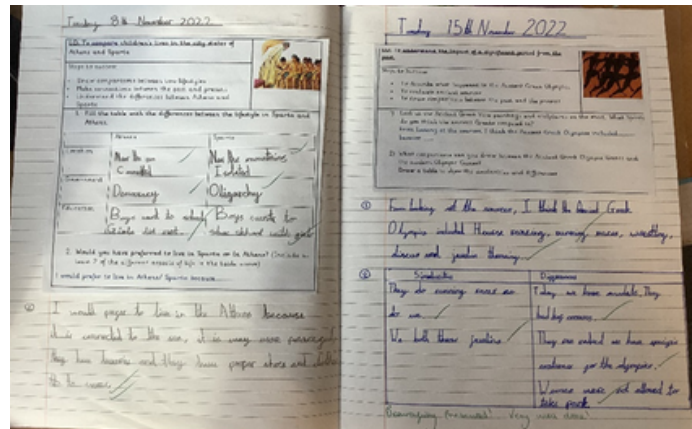 Tuesday 8th November 2022
LO: To compare children's lives in the city states of
Athens and Sparta
Steps to success
Draw comparisons between two lifestyles
Make connections between the past and present
Understand the differences between Athens and
Sparta
1. Fill the table with the differences between the lifestyle in Sparta and
Athens.
Athens Sparta
Location Near the sea Near the mountains
Connected Isolated
Government Democracy Oligarchy
Education Boys went to school Boys
Girls did not
2. Would you have preferred to live in Sparta or in Athens? (Include at
least of the different aspects of life in the table above)
I would prefer to live in Athens/ Sparta because
② I would prefer to live in the Athens because
it is connected to the sea, it is very more
they have and they have proper shoes and clothes
to wear.
Tuesday 15th November 2022
LO: To understand the legacy of a significant period from the
past.
Steps to success
To describe what happened in the Ancient Greek Olympics
To evaluate ancient sources
To draw comparisons between the past and the present
1) Look at the Ancient Greek vase paintings and sculptures on the mat. What sports
do you think the ancient Greeks competed in?
From looking at the sources, I think the Ancient Greek Olympics included
because
2) What comparisons can you draw between the Ancient Greek Olympic Games and
the modern Olympic Games?
Draw a table to show the similarities and differences
① From looking at the sources, I think the Ancient Greek
Olympics included Horse racing, running races, wrestling,
discus and javelin throwing.
② Similarities Differences
They do running races as Today we have medals. They
do we. had crowns.
We both throw javelins They are naked we have specific
for the olympics.
Women were not allowed to
take part
presented! Very well done!